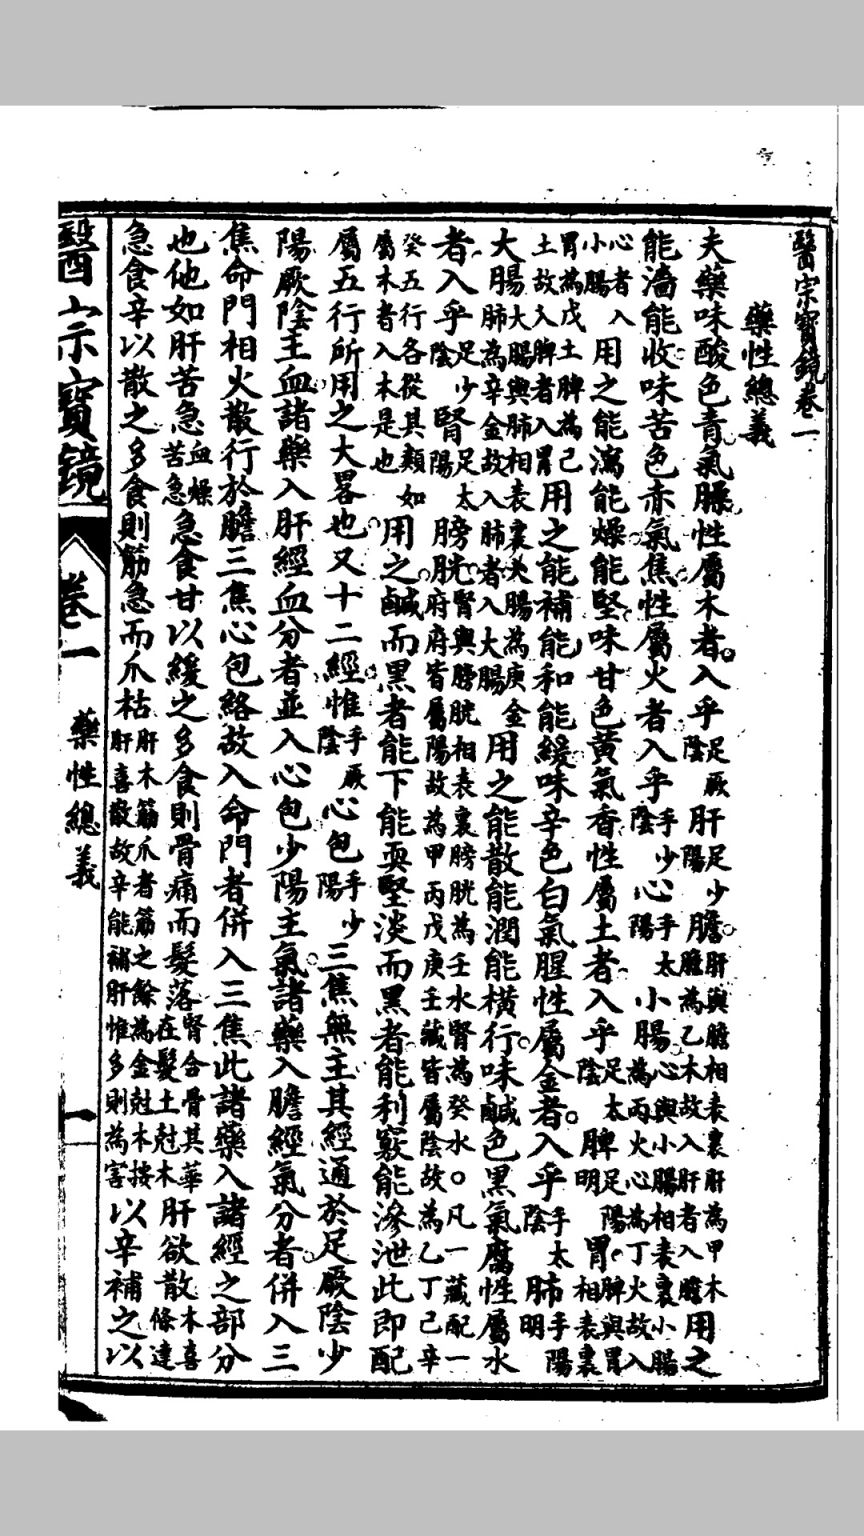 醫宗寶鏡卷一
藥性總義
夫藥味酸色青氣臊性屬木者入乎足厥陰肝足少陽膽膽肝與膽相表裏肝為甲木膽為乙木故入肝者入膽用之
能濇能收味苦色赤氣焦性屬火者入乎手少陰心手太陽小腸心與小腸相表裏小腸為丙火心為丁火故入心者入小腸
用之能瀉能燥能堅味甘色黃氣香性屬土者入乎足太陰脾足陽明胃脾與胃相表裏
胃為戊土脾為己土故入脾者入胃用之能補能和能緩味辛色白氣腥性屬金者入乎手太陰肺手陽明
大腸大腸與肺相表裏大腸為庚金肺為辛金故入肺者入大腸用之能散能潤能橫行味鹹色黑氣腐性屬水
者入乎足少陰腎足太陽膀胱腎與膀胱相表裏膀胱為壬水腎為癸水凡一藏配一府府皆屬陽故為甲丙戊庚壬藏皆屬陰故為乙丁己辛
癸五行各從其類如屬木者入木是也用之鹹而黑者能下能耎堅淡而黑者能利竅能滲泄此即配
屬五行所用之大畧也又十二經惟手厥陰心包手少陽三焦無主其經通於足厥陰少
陽厥陰主血諸藥入肝經血分者並入心包少陽主氣諸藥入膽經氣分者併入三
焦命門相火散行於膽三焦心包絡故入命門者併入三焦此諸藥入諸經之部分
也他如肝苦急血燥苦急急食甘以緩之多食則骨痛而髮落腎合骨其華在髮土尅木肝欲散木喜條達
急食辛以散之多食則筋急而爪枯肝木筋爪者筋之餘為金尅木按肝喜散故辛能補肝惟多則為害以辛補之以
醫宗寶鏡 卷一 藥性總義 一